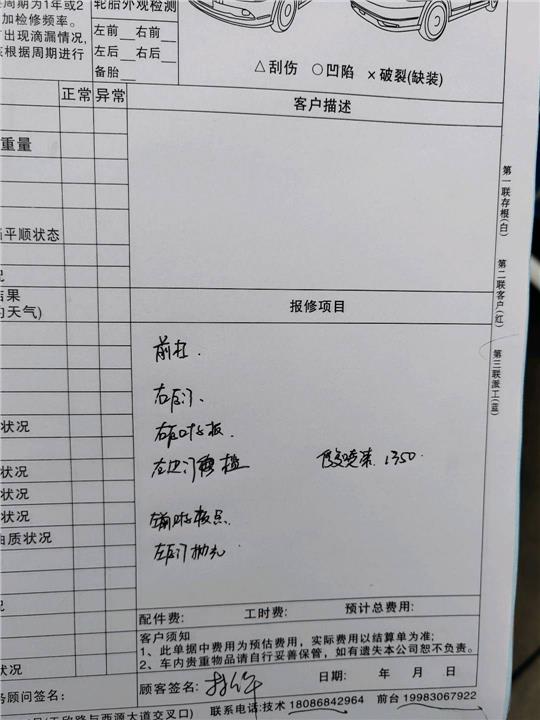 周期为1年或2
加检修频率。
出现滴漏情况,
根据周期进行
轮胎外观检测
左前 右前
左后 右后
备胎
△刮伤 ○凹陷 ×破裂(缺装)
正常 异常
客户描述
重量
平顺状态
况
结果
的天气)
报修项目
前杠.
右后门.
右后叶子板.
左边门槛 喷漆. 1350
左前叶子板点.
左后门抛光
状况
状况
状况
状况
油质状况
况
状况
配件费: 工时费: 预计总费用:
客户须知
1、此单据中费用为预估费用，实际费用以结算单为准;
2、车内贵重物品请自行妥善保管，如有遗失本公司恕不负责。
务顾问签名:
顾客签名: 日期: 年 月 日
路与西源大道交叉口)
联系电话:技术 18086842964 前台 19983067922
第一联存根(白)
第二联客户(红)
第三联派工(蓝)